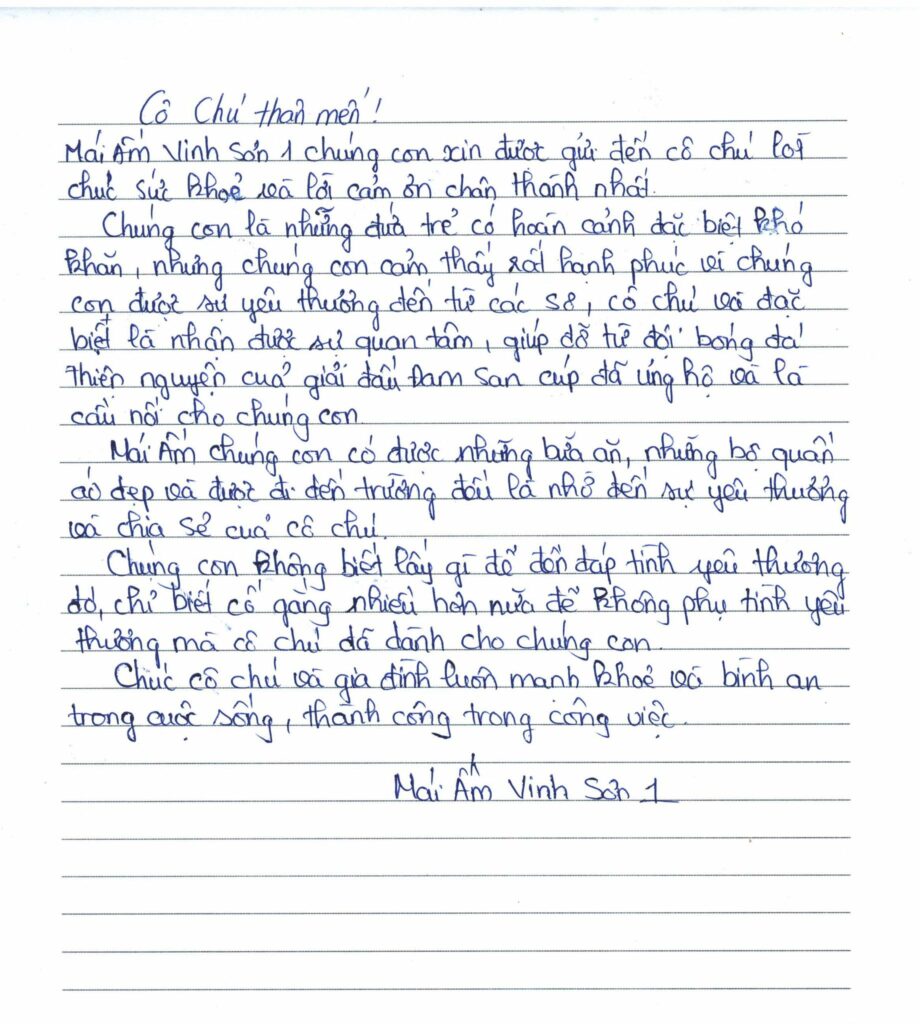 Cô Chú thân mến!
Mái Ấm Vinh Sơn 1 chúng con xin được gửi đến cô chú lời
chúc sức khoẻ và lời cảm ơn chân thành nhất.
Chúng con là những đứa trẻ có hoàn cảnh đặc biệt khó
khăn, nhưng chúng con cảm thấy rất hạnh phúc vì chúng
con được sự yêu thương đến từ các sơ, cô chú và đặc
biệt là nhận được sự quan tâm, giúp đỡ từ đội bóng đá
thiện nguyện của giải đấu Đam San cúp đã ủng hộ và là
cầu nối cho chúng con.
Mái Ấm chúng con có được những bữa ăn, những bộ quần
áo đẹp và được đi đến trường đều là nhờ đến sự yêu thương
và chia sẻ của cô chú.
Chúng con không biết lấy gì để đền đáp tình yêu thương
đó, chỉ biết cố gắng nhiều hơn nữa để không phụ tình yêu
thương mà cô chú đã dành cho chúng con.
Chúc cô chú và gia đình luôn mạnh khoẻ và bình an
trong cuộc sống, thành công trong công việc.
Mái Ấm Vinh Sơn 1